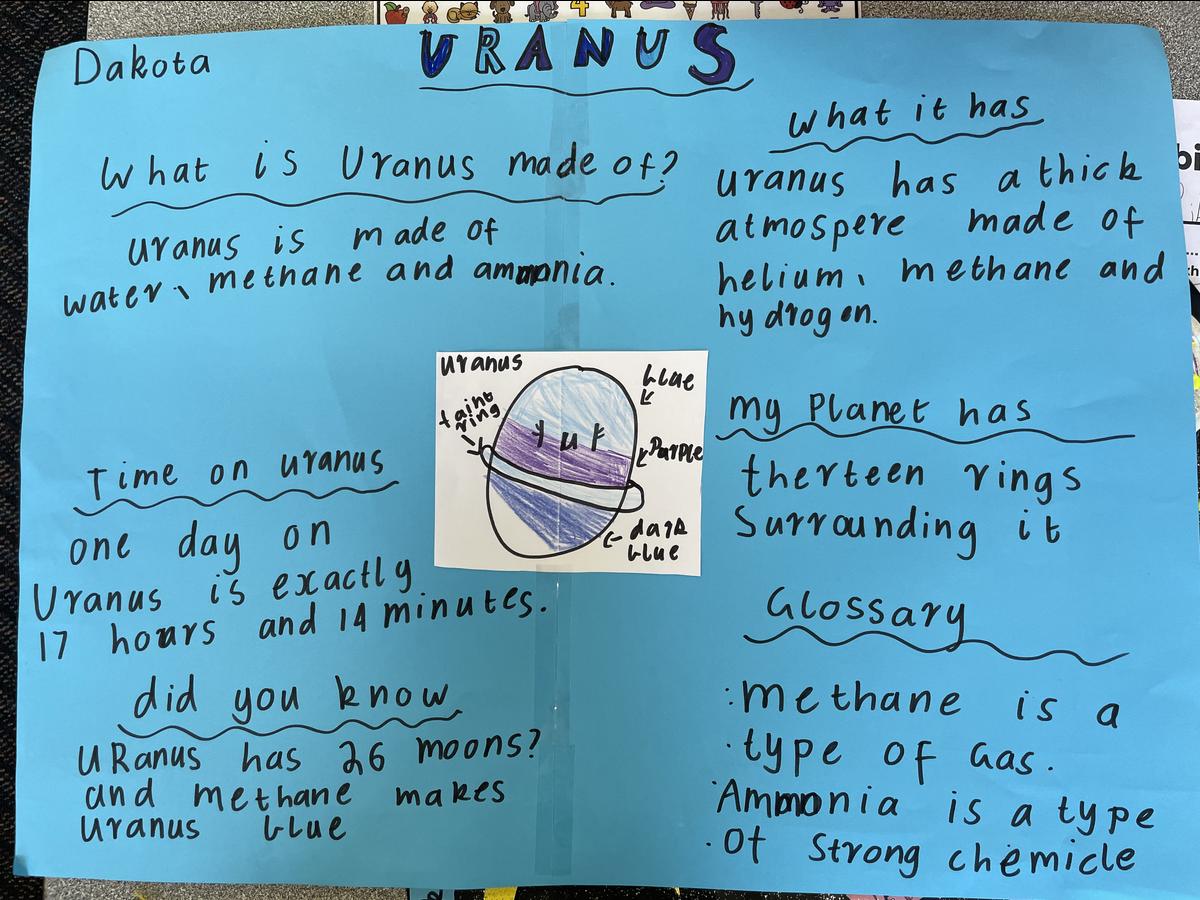 Dakota
URANUS
What is Uranus made of?
uranus is made of
water, methane and ammonia.
what it has
uranus has a thick
atmospere made of
helium, methane and
hydrogen.
uranus
faint
ring
blue
Purple
dark
blue
my Planet has
therteen rings
Surrounding it
Time on uranus
one day on
Uranus is exactly
17 hours and 14 minutes.
did you know
URanus has 26 moons?
and methane makes
uranus blue
Glossary
methane is a
type of Gas.
Ammonia is a type
of strong chemicle